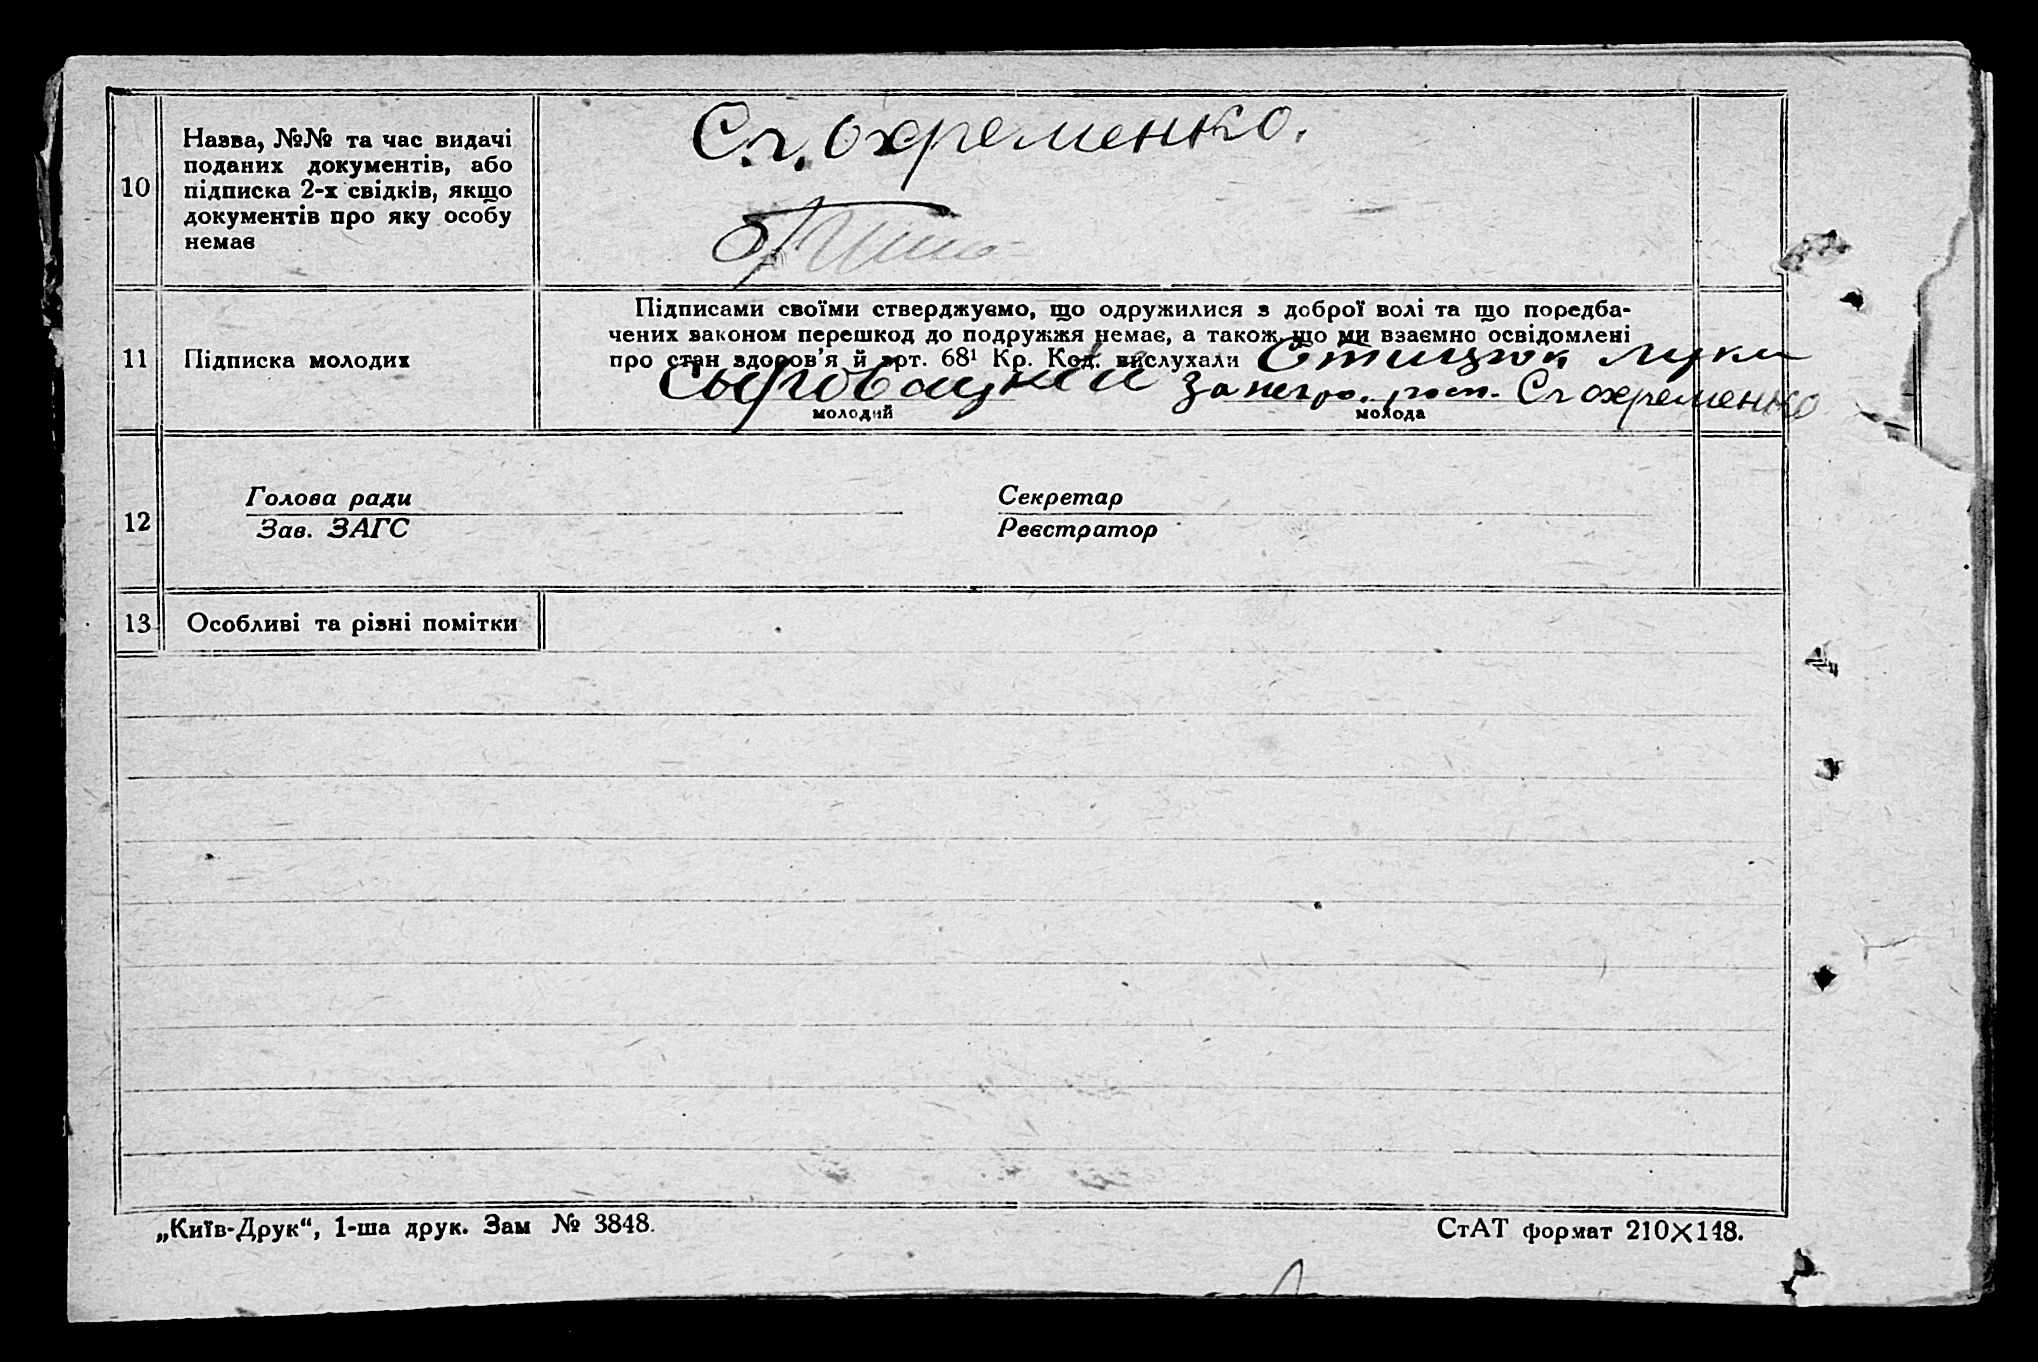 10
Назва, №№ та час видачі
поданих документів, або
підписка 2-х свідків, якщо
документів про яку особу
немає
Сл. Охременко.
11
Підписка молодих
Підписами своїми стверджуємо, що одружилися з доброї волі та що поредба-
чених законом перешкод до подружжя немає, а також, що ми взаємно освідомлені
про стан здоров'я й арт. 68¹ Кр. Код. вислухали
Сыровацкий
Сл Охременко
молодий
молода
12
Голова ради
Зав. ЗАГС
Секретар
Реєстратор
13
Особливі та різні помітки
„Київ-Друк“, 1-ша друк. Зам № 3848.
СтАТ формат 210×148.